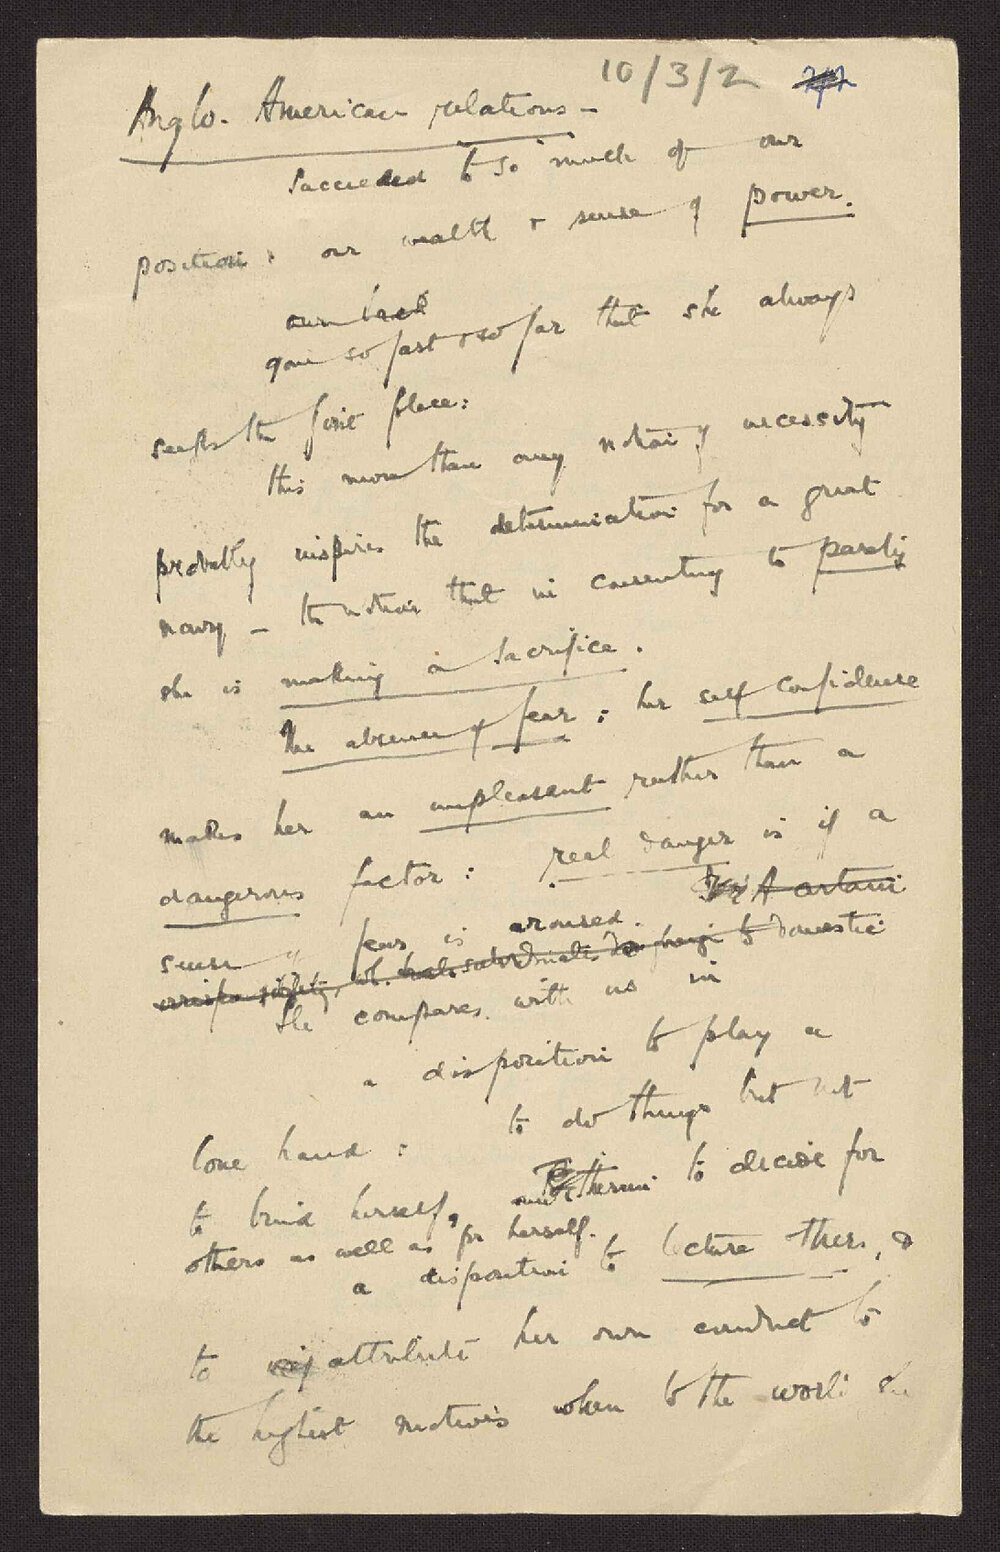 10/3/2
Anglo-American relations -
Succeeded to so much of our
position: our wealth & sense of power.
gone so fast & so far that she always
seeks the first place:
this more than any notion of necessity
probably inspires the determination for a great
navy - the notion that in consenting to parity
she is making a sacrifice.
The absence of fear; her self confidence
makes her an unpleasant rather than a
dangerous factor: real danger is if a
sense of fear is aroused. A certain
to domestic
She compares with us in
a disposition to play a
lone hand: to do things but not
to bind herself, to decide for
others as well as for herself.
a disposition to lecture others, &
to attribute her own conduct to
the highest motives when to the world she